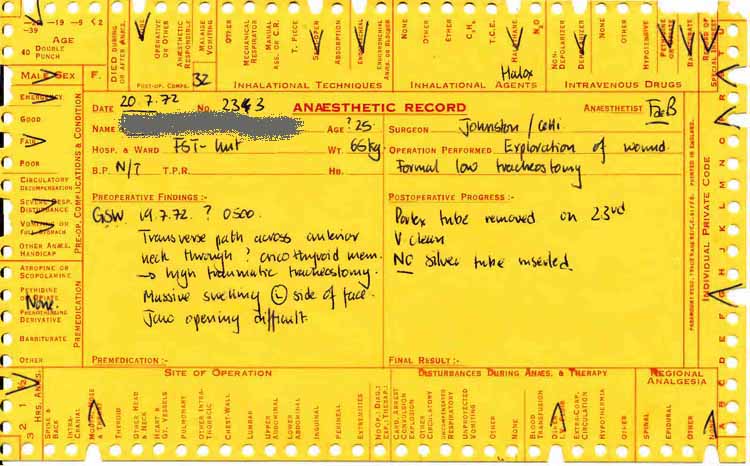 -39 -19 -9 <2
AGE
40 DOUBLE PUNCH
DIED DURING OR AFTER ANÆS.
AGE
OPERATIVE OR OTHER
ANÆSTHETIC RESPONSIBLE
MALAISE VOMITING
OTHER
MECHANICAL RESPIRATOR
MANUAL ASS. OR C.R.
T. PIECE
ABSORPTION
NONE
OTHER
ETHER
C₃H₆
T.C.E.
HALOTHANE
N₂O
NON-DEPOLARIZER
DEPOLARIZER
OTHER
HYPOTENSIVE
BARBITURATE
RECORD OF SPECIAL INTEREST
MALE SEX F.
POST-OP. COMPS. 32
INHALATIONAL TECHNIQUES
INHALATIONAL AGENTS
Halox
INTRAVENOUS DRUGS
EMERGENCY
GOOD
FAIR
POOR
CIRCULATORY DECOMPENSATION
SEVERE RESP. DISTURBANCE
VOMITING OR FULL STOMACH
OTHER ANÆS. HANDICAP
PRE-OP. COMPLICATIONS & CONDITION
ATROPINE OR SCOPOLAMINE
PETHIDINE OR OPIATE
None.
PHENOTHIAZINE DERIVATIVE
BARBITURATE
OTHER
PREMEDICATION
DATE 20.7.72 No. 2343 ANAESTHETIC RECORD ANAESTHETIST
NAME AGE ?25 SURGEON Johnston /
HOSP. & WARD FST-Unit WT. 65kg OPERATION PERFORMED Exploration of wound
B.P. N/T T.P.R. HB. Formal low tracheostomy
PREOPERATIVE FINDINGS:-
GSW 19.7.72. ? 0500.
Transverse path across anterior
neck through ? cricothyroid mem.
→ high traumatic tracheostomy.
Massive swelling (L) side of face.
Jaw opening difficult.
PREMEDICATION:-
POSTOPERATIVE PROGRESS:-
Portex tube removed on 23rd
V clean
NO silver tube inserted
FINAL RESULT:-
INDIVIDUAL PRIVATE CODE
PRINTED IN ENGLAND.
SITE OF OPERATION
DISTURBANCES DURING ANÆS. & THERAPY
REGIONAL ANALGESIA
3 2 1 ½
HRS. ANÆS.
SPINE & BACK
INTRA-CRANIAL
THYROID
OTHER HEAD & NECK
HEART & GT. VESSELS
PULMONARY
OTHER INTRA-THORACIC
CHEST-WALL
LUMBAR
UPPER ABDOMINAL
LOWER ABDOMINAL
INGUINAL
PERINEAL
EXTREMITIES
CARD. ARREST CONVULSION EXPLOSION
OTHER CIRCULATORY
UNCOMPENSATED RESPIRATORY
UNPROTECTED VOMITING
OTHER
NONE
BLOOD TRANSFUSION
EXTRA-CORP. CIRCULATION
HYPOTHERMIA
OTHER
SPINAL
EPIDURAL
OTHER
NONE